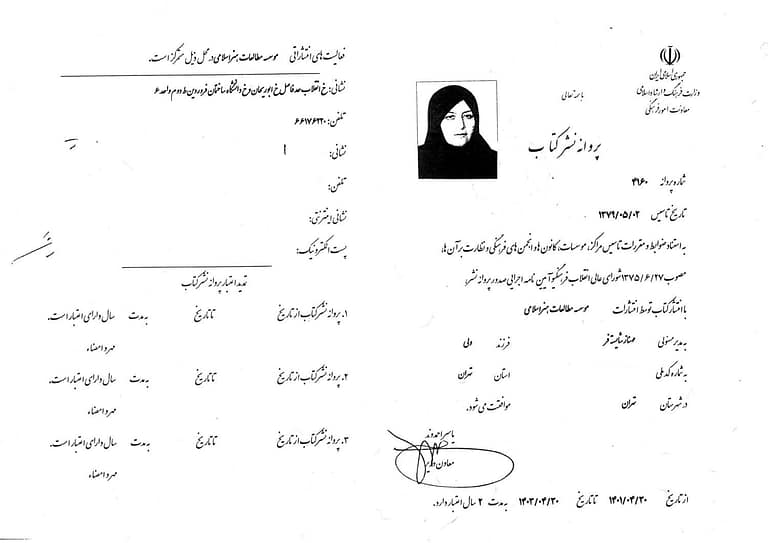 جمهوری اسلامی ایران
وزارت فرهنگ و ارشاد اسلامی
معاونت امور فرهنگی
باسمه تعالی
پروانه نشر کتاب
شماره پروانه ۴۹۶۰
تاریخ تاسیس ۱۳۷۹/۰۵/۰۲
به استناد ضوابط و مقررات تاسیس مراکز، موسسات، کانون ها و انجمن های فرهنگی و نظارت بر آن ها،
مصوب ۱۳۷۵/۶/۲۷ شورای عالی انقلاب فرهنگی و آیین نامه اجرایی صدور پروانه نشر؛
با انتشار کتاب توسط انتشارات موسسه مطالعات هنر اسلامی
به مدیر مسئولی مهناز شایسته فر فرزند ولی
به شماره کد ملی استان تهران
در شهرستان تهران موافقت می شود.
یاسر احمدوند
معاون وزیر
از تاریخ ۱۴۰۱/۰۴/۳۰ تا تاریخ ۱۴۰۳/۰۴/۳۰ به مدت ۲ سال اعتبار دارد.
فعالیت های انتشاراتی موسسه مطالعات هنر اسلامی در محل ذیل متمرکز است.
نشانی: خ انقلاب حد فاصل خ ابوریحان و خ دانشگاه ساختمان فروردین ط دوم واحد ۶
تلفن: ۶۶۱۷۶۲۲۰
نشانی:
تلفن:
نشانی اینترنتی:
پست الکترونیک:
تمدید اعتبار پروانه نشر کتاب
۱. پروانه نشر کتاب از تاریخ تا تاریخ به مدت سال دارای اعتبار است.
مهر و امضاء
۲. پروانه نشر کتاب از تاریخ تا تاریخ به مدت سال دارای اعتبار است.
مهر و امضاء
۳. پروانه نشر کتاب از تاریخ تا تاریخ به مدت سال دارای اعتبار است.
مهر و امضاء